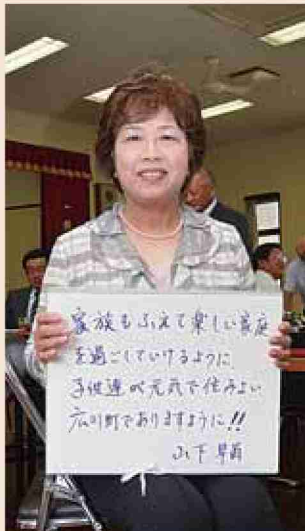 家族もふえて楽しい家庭
を過ごしていけるように
子供達が元気で住みよい
広川町でありますように!!
山下 早苗